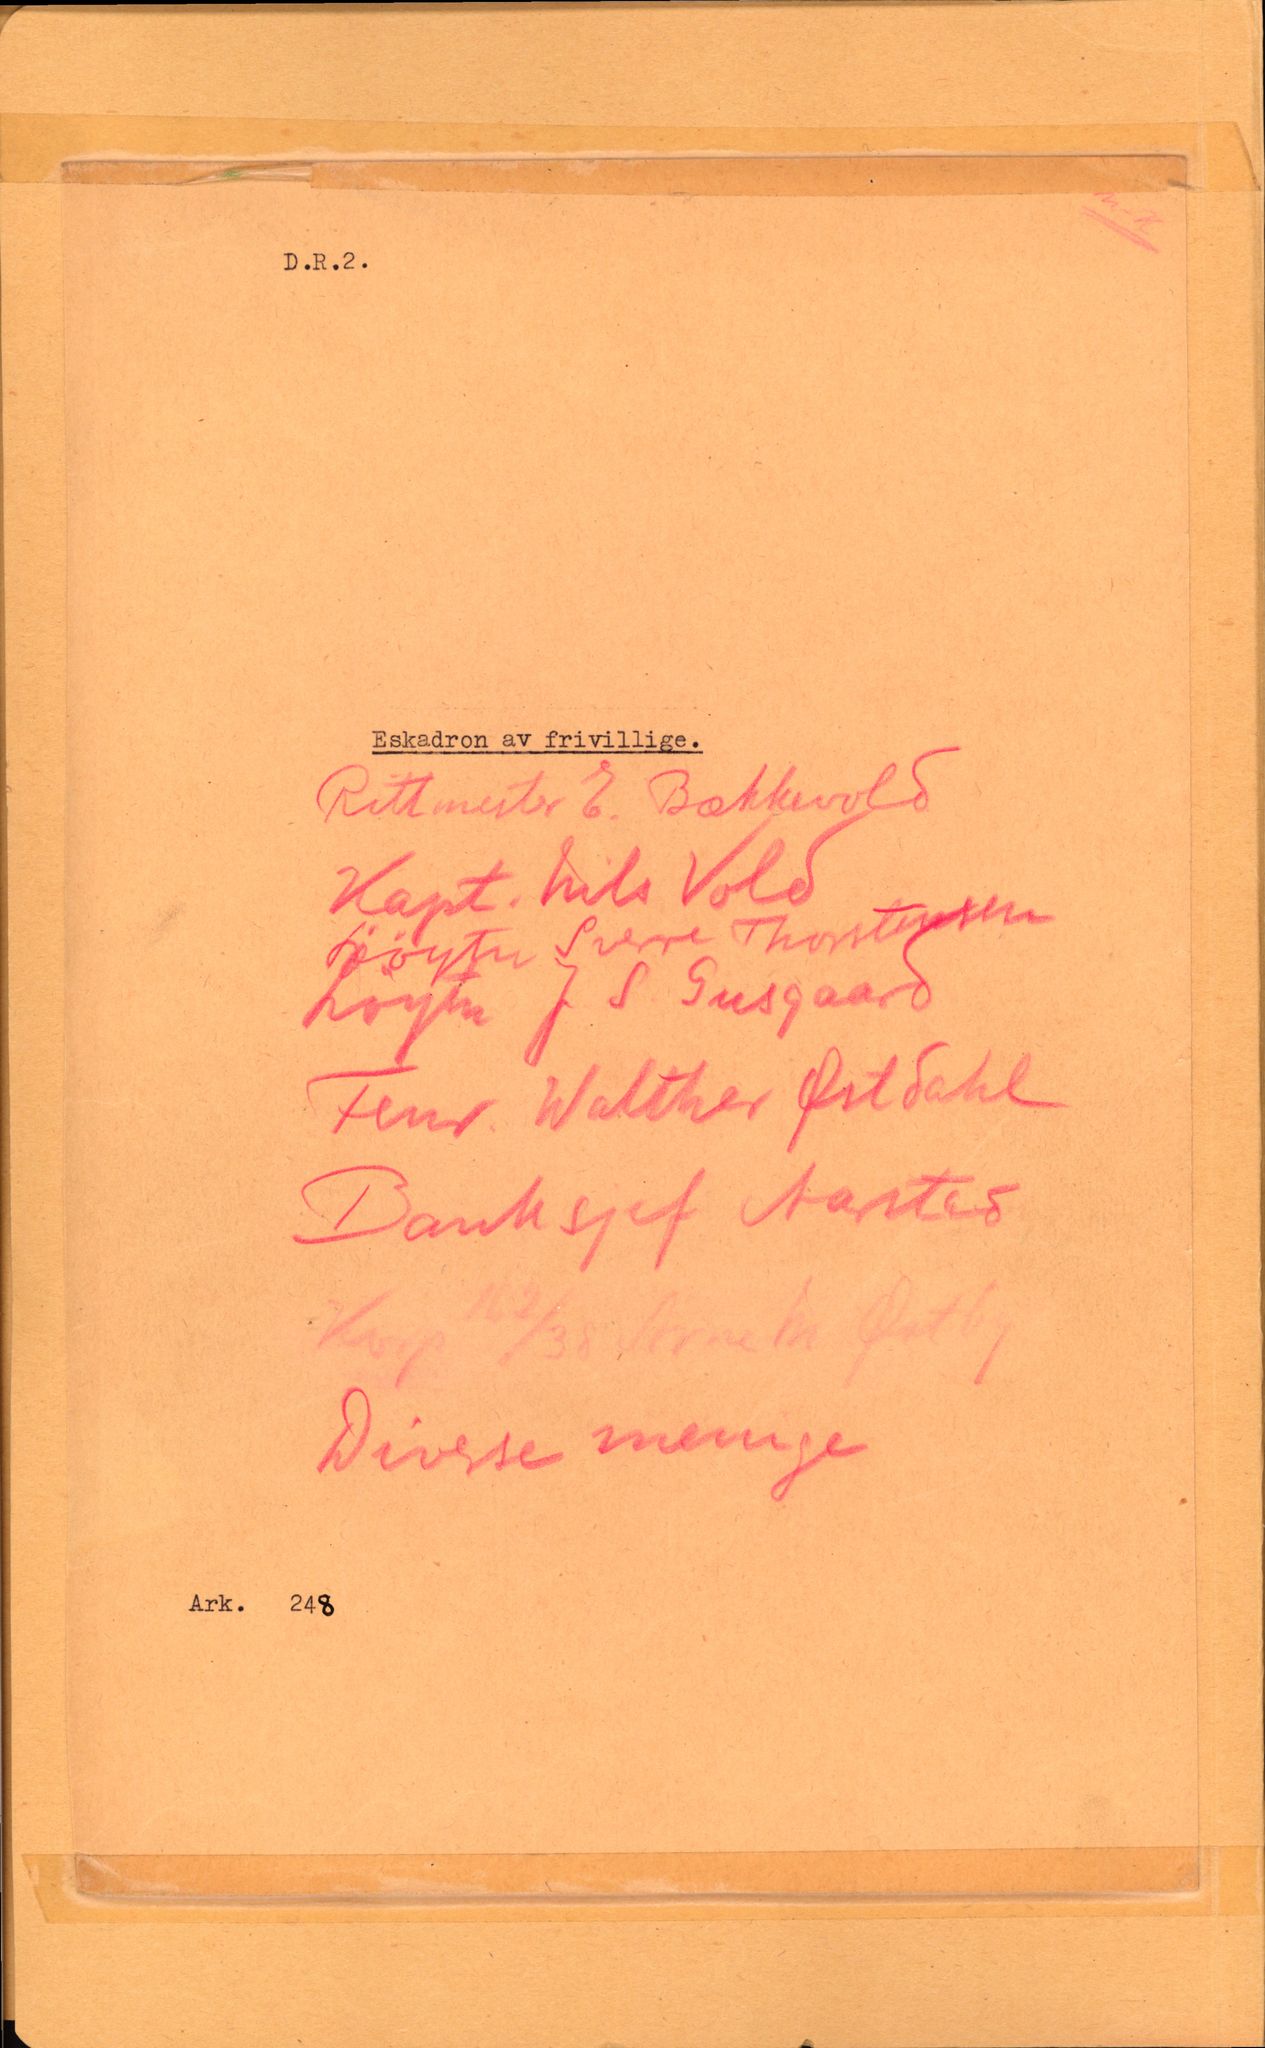 D.R.2.
Eskadron av frivillige.
Rittmester E. Bækkevold
Kapt. Nils Vold
Löytn Sverre Thorstensen
Löytn J S Gusgaard
Fenr. Walther Østdahl
Banksjef Aarstad
Korp 169/38 Arne M Østby
Diverse menige
Ark. 248